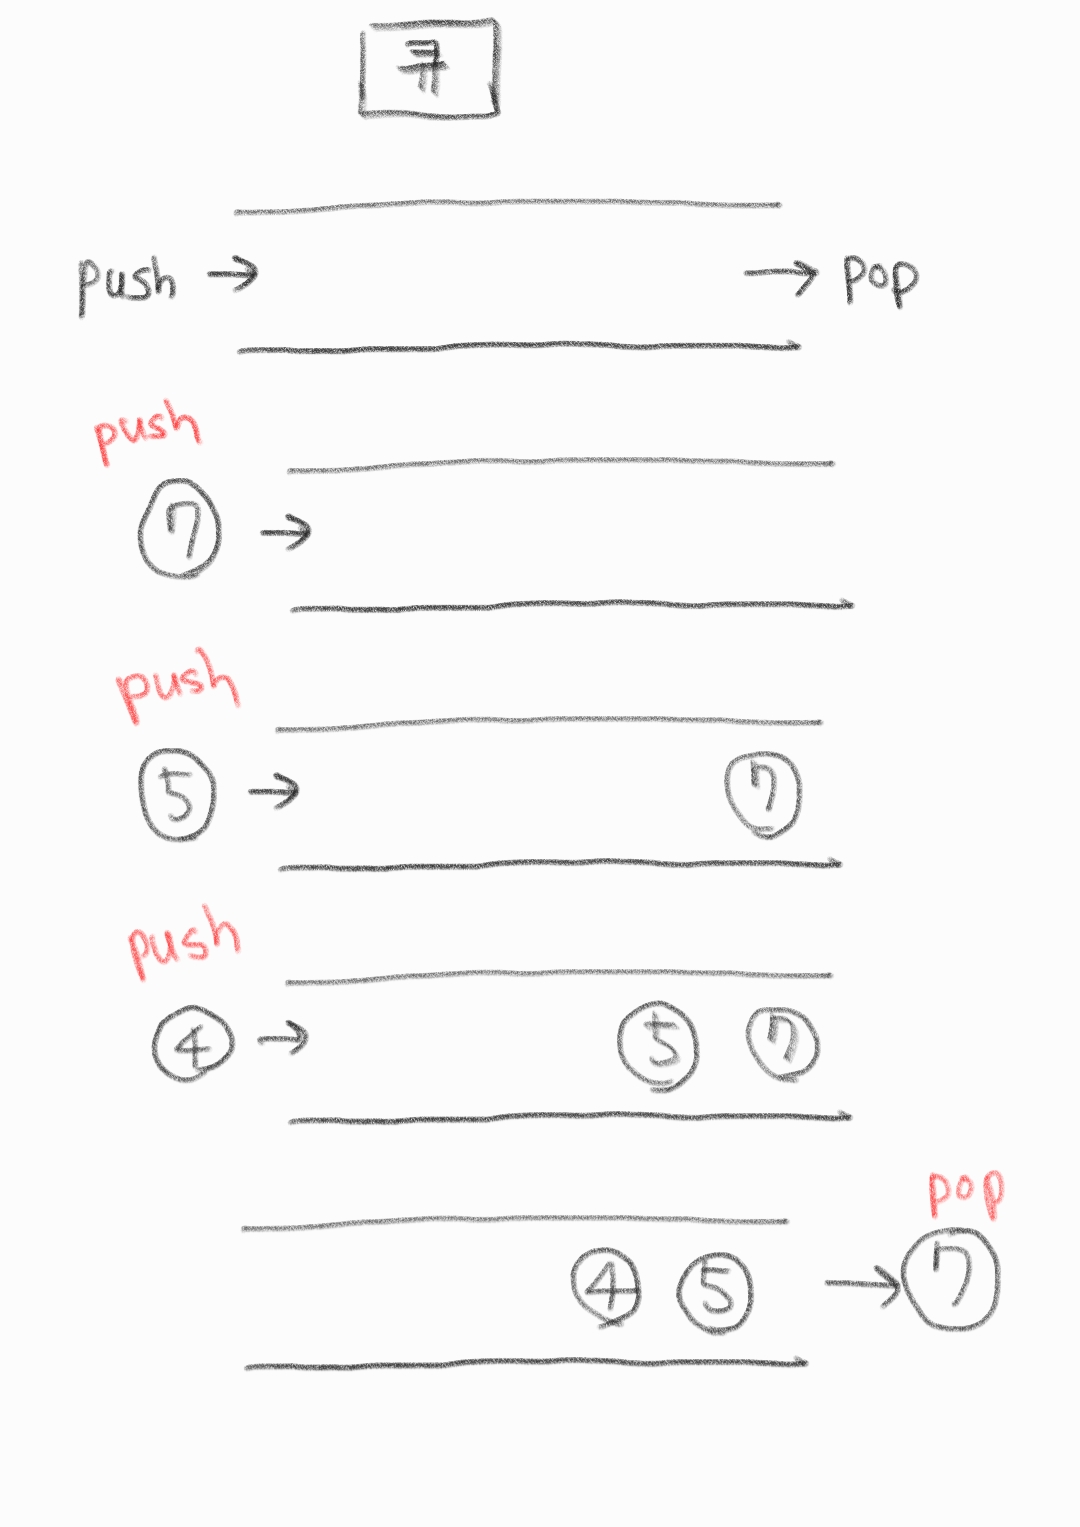 큐
push → → pop
push
7 →
push
5 → 7
push
4 → 5 7
pop
4 5 → 7